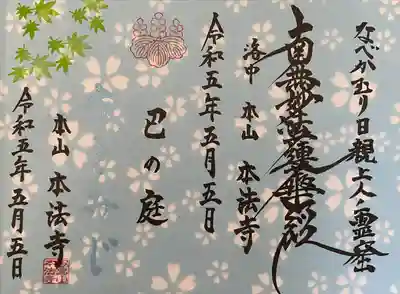 なべかむり日親上人ノ霊窟
南無妙法蓮華経
洛中 本山 本法寺
令和五年五月五日
巴の庭
本山 本法寺
令和五年五月五日